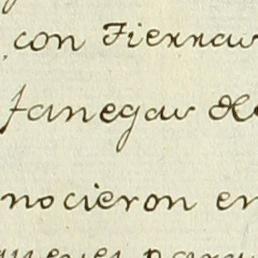 con Tierras
fanegas de
nocieron en